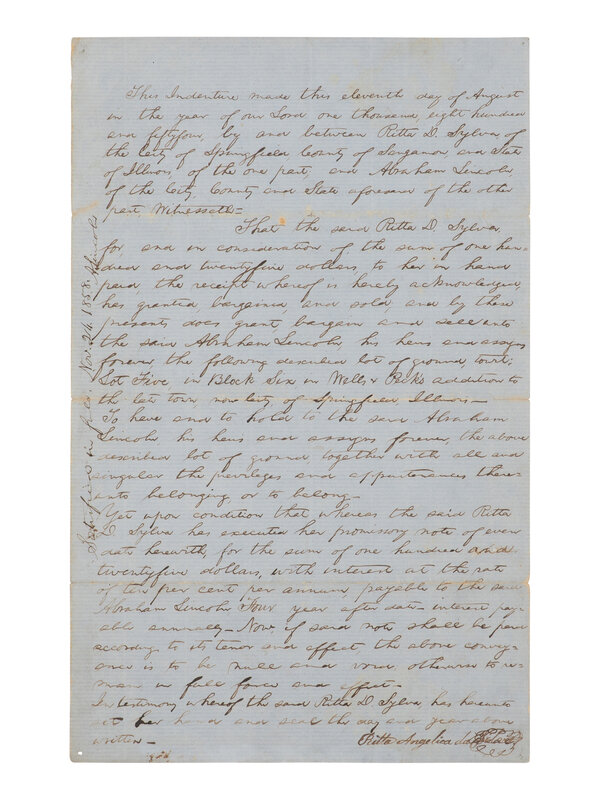 This Indenture made this eleventh day of August
in the year of our Lord one thousand, eight hundred
and fiftyfour, by and between Ritta D. Sylva of
the City of Springfield County of Sangamon, and State
of Illinois, of the one part, and Abraham Lincoln,
of the City, County and State aforesaid of the other
part, Witnesseth=
That the said Ritta D. Sylva,
for, and in consideration of the sum of one hun-
dred and twentyfive dollars, to her in hand
paid, the receipt whereof is hereby acknowledged,
has granted, bargained, and sold, and by these
presents does grant, bargain and sell unto
the said Abraham Lincoln, his heirs and assigns
forever, the following described lot of ground, towit;
Lot Five, in Block Six in Wells & Peck's addition to
the late town, now city, of Springfield Illinois—
To have and to hold to the said Abraham
Lincoln his heirs and assigns forever, the above
described lot of ground together with all and
singular the previleges and appurtenances there-
unto belonging or to belong—
Yet upon condition that whereas the said Ritta
D Sylva has executed her promissory note of even
date herewith, for the sum of one hundred and
twentyfive dollars, with interest at the rate
of ten per cent per annum, payable to the said
Abraham Lincoln Four year after date—interest pay-
able annually—Now, if said note shall be paid
according to its tenor and effect, the above convey-
ance is to be null and void, otherwise to re-
main in full force and effect—
In testimony whereof the said Ritta D. Sylva has hereunto
set her hand and seal the day and year above
written—
Ritta Angelica da
Satisfied in full, Nov. 24. 1858. A Lincoln